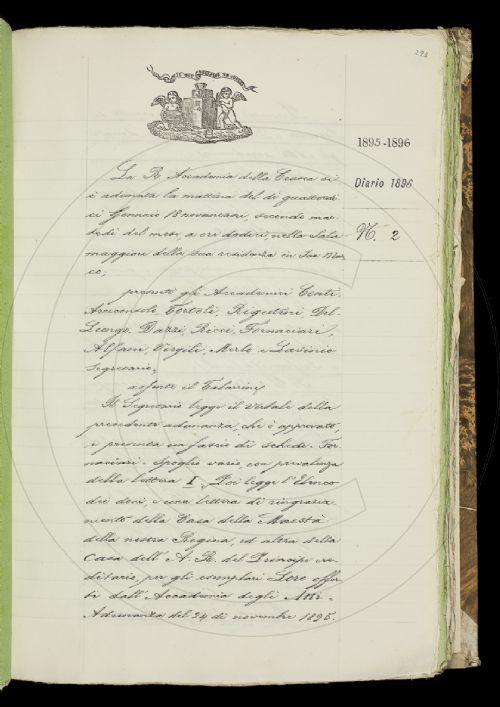 293
1895-1896
Diario 1896
N. 2
La R. Accademia della Crusca si
è adunata la mattina del dì quattordi
ci Gennaio 18novansei, secondo mar
tedì del mese, a ore dodici, nella Sala
maggiore della sua residenza in San Mar
co;
presenti gli Accademici Conti,
Arciconsolo, Tortoli, Rigutini, Del
Lungo, Dazzi, Ricci, Fornaciari,
Alfani, Vergili, Merlo e Lasinio
Segretario;
assente il Tabarrini
Il Segretario legge il verbale della
precedente adunanza, che è approvato,
e presenta un fascio di schede. For
naciari. Spoglio vario con prevalenza
della lettera I. Poi legge l'Elenco
dei doni, e una lettera di ringrazia
mento della Casa della Maestà
della nostra Regina, ed altra della
Casa dell'A. R. del Principe ere
ditario, per gli esemplari Loro offer
ti dall'Accademia degli Atti.
Adunanza del 24 di novembre 1895.